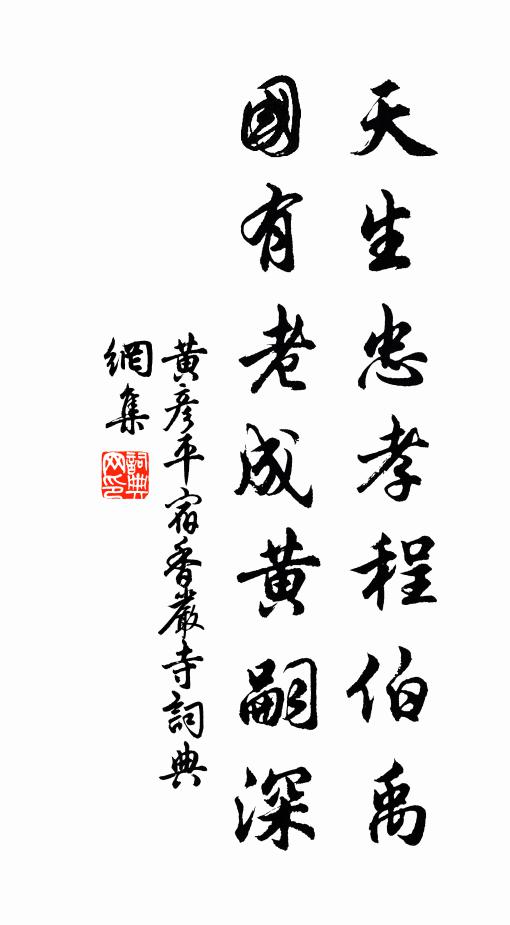 天生忠孝程伯禹
國有老成黄嗣深
黄彦平宿香嚴寺詞典
網集
詞典网印